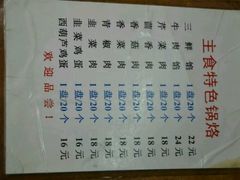 主食特色锅烙
三鲜馅 1盘/20个 22元
牛肉馅 1盘/20个 24元
芹菜肉 1盘/20个 18元
茴香肉 1盘/20个 18元
香菇肉 1盘/20个 18元
香菜肉 1盘/20个 18元
青椒肉 1盘/20个 18元
韭菜肉 1盘/20个 18元
韭菜鸡蛋 1盘/20个 16元
西葫芦鸡蛋 1盘/20个 16元
欢迎品尝！